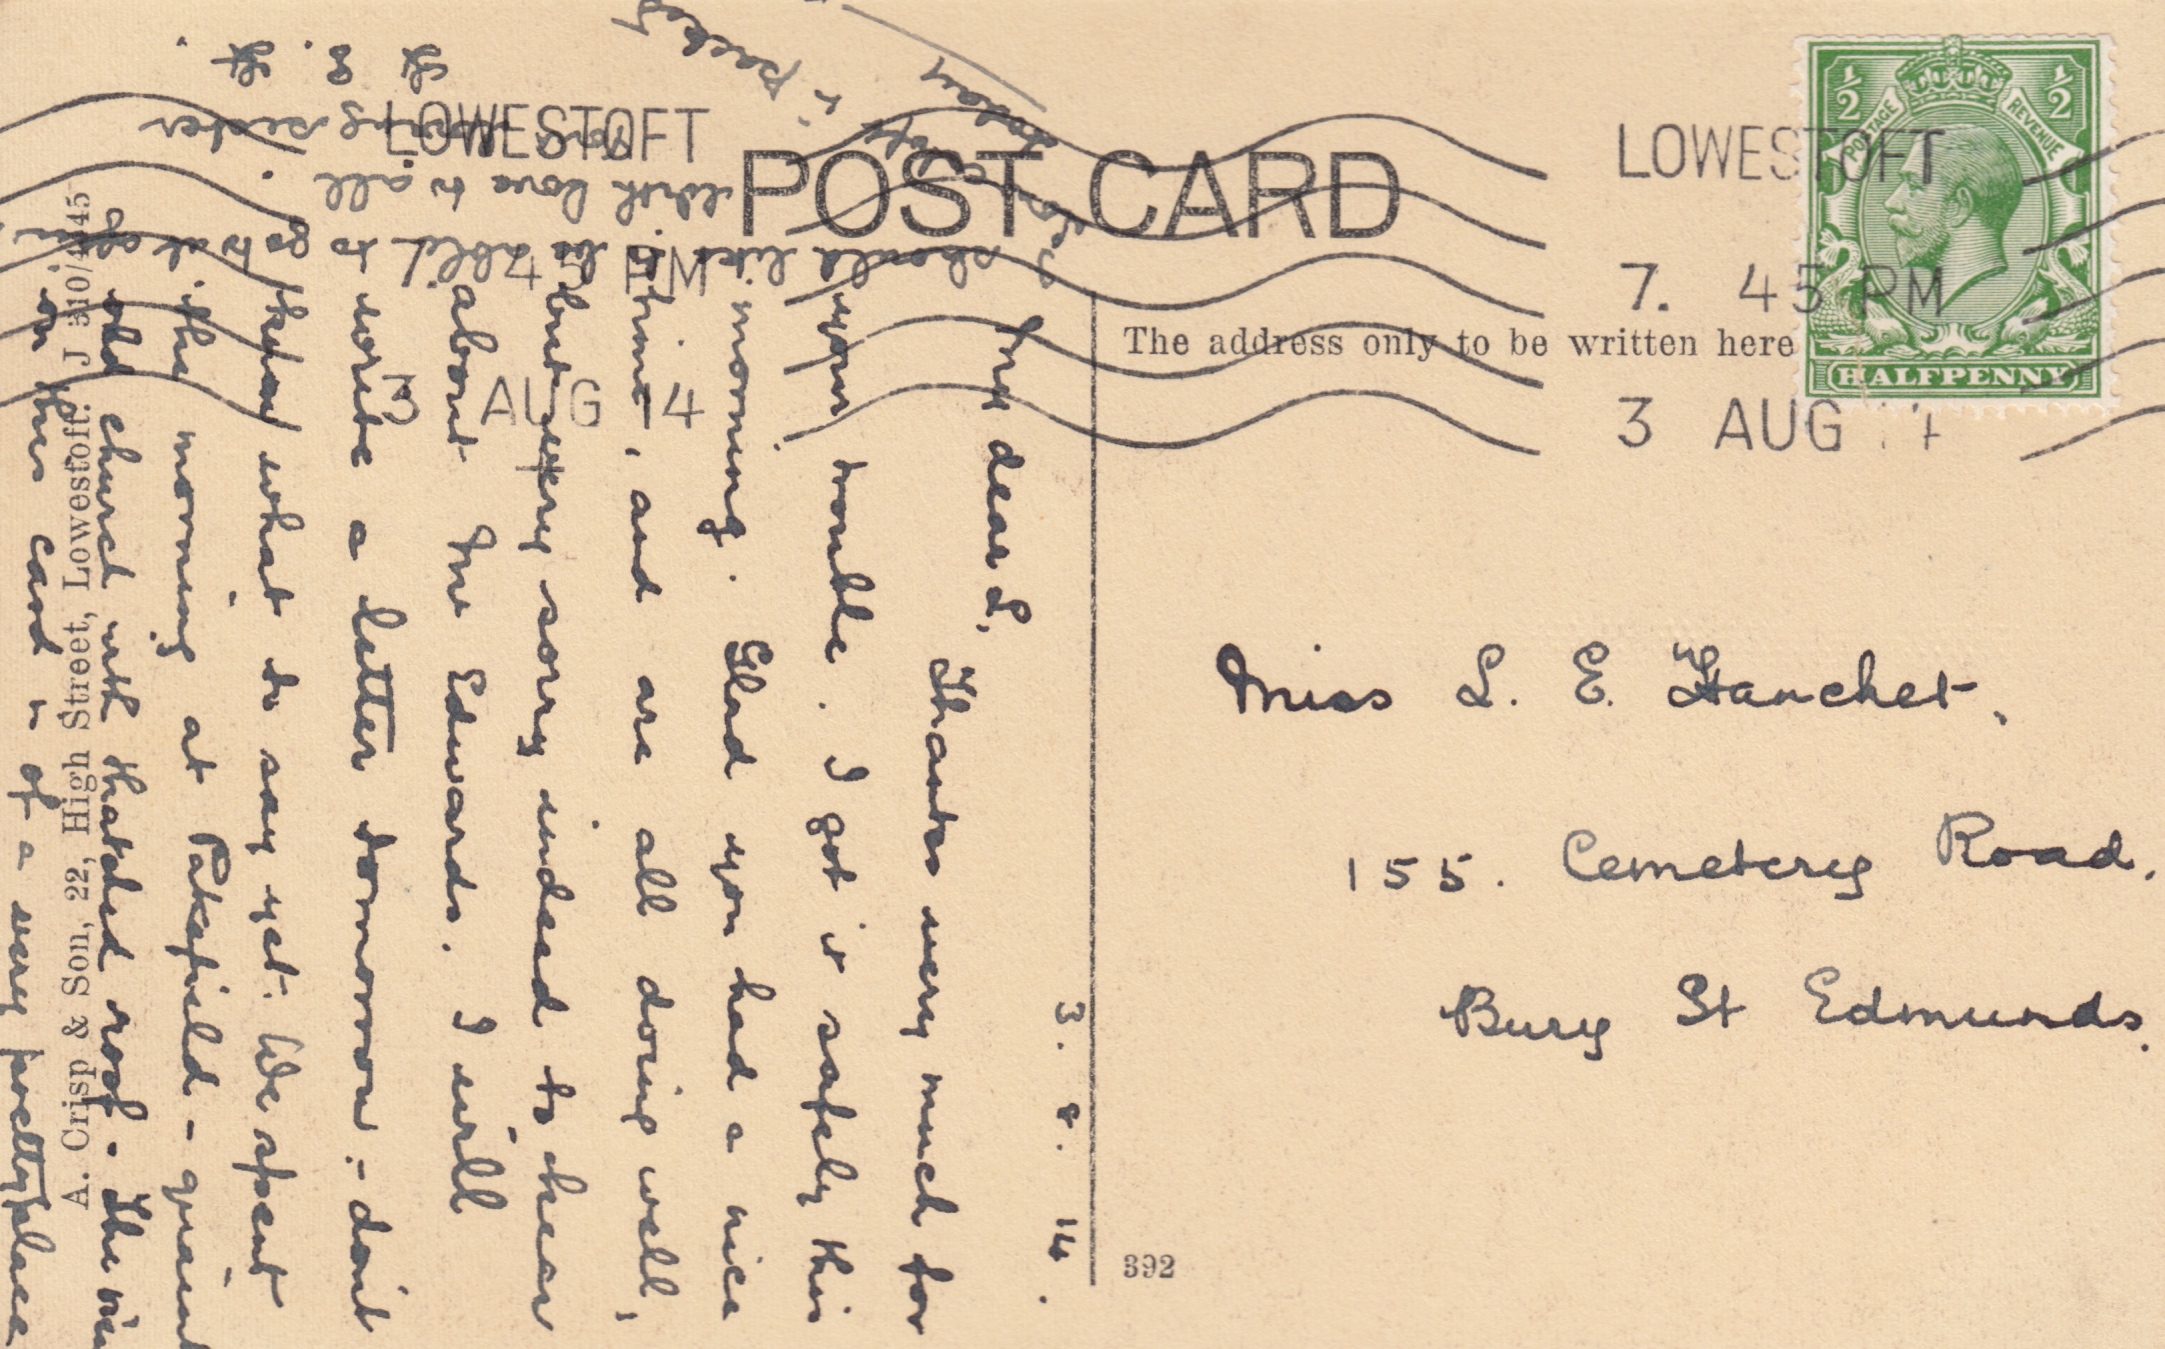 POST CARD
LOWESTOFT
7. 45 PM
3 AUG 14
LOWESTOFT
7. 45 PM
3 AUG 14
½ ½
POSTAGE REVENUE
HALFPENNY
The address only to be written here
Miss L. E. Hanchet.
155. Cemetery Road.
Bury St Edmunds.
392
A. Crisp & Son, 22, High Street, Lowestoft. J 310/4445
3. 8. 14.
My dear L.
Thanks very much for
your trouble. I got it safely this
morning. Glad you had a nice
time, and are all doing well,
but very sorry indeed to hear
about Mr Edwards. I will
write a letter tomorrow :- don't
know what to say yet. We spent
the morning at Pakefield - quaint
old church with thatched roof. The view
on this card is of a very pretty place
I should like to be able to go to it
With love to all
sister
H.